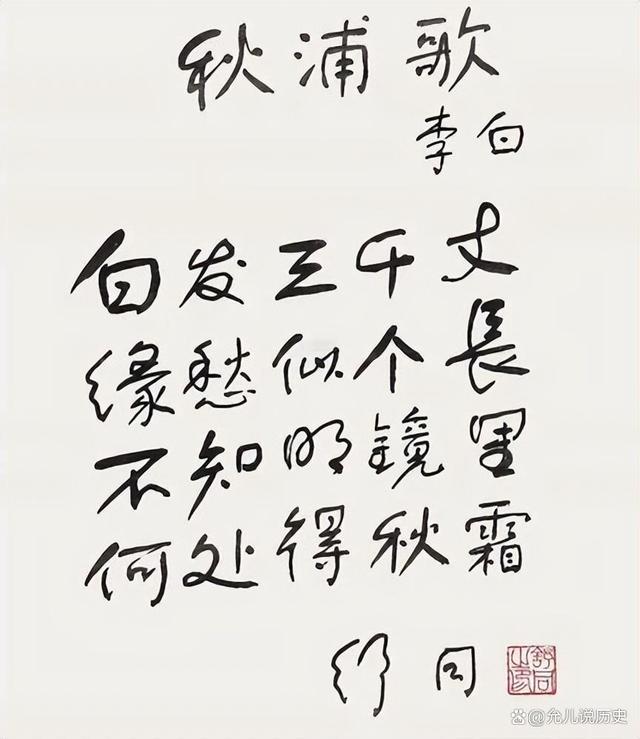 秋浦歌
李白
白发三千丈
缘愁似个長
不知明镜里
何处得秋霜
舒同
舒同之印
@允儿说历史